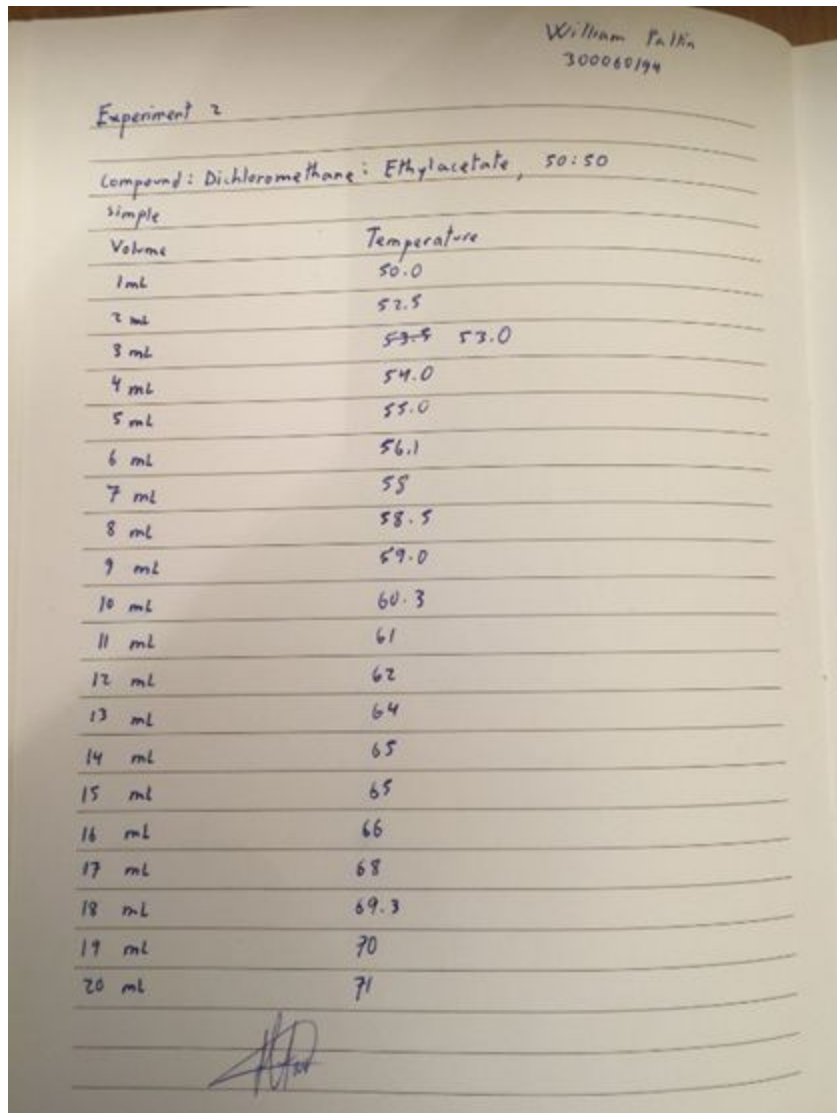 William Pallin
300060194
Experiment 2
Compound: Dichloromethane: Ethylacetate, 50:50
simple
Volume Temperature
1 mL 50.0
2 mL 52.5
3 mL 53.5 53.0
4 mL 54.0
5 mL 55.0
6 mL 56.1
7 mL 58
8 mL 58.5
9 mL 59.0
10 mL 60.3
11 mL 61
12 mL 62
13 mL 64
14 mL 65
15 mL 65
16 mL 66
17 mL 68
18 mL 69.3
19 mL 70
20 mL 71